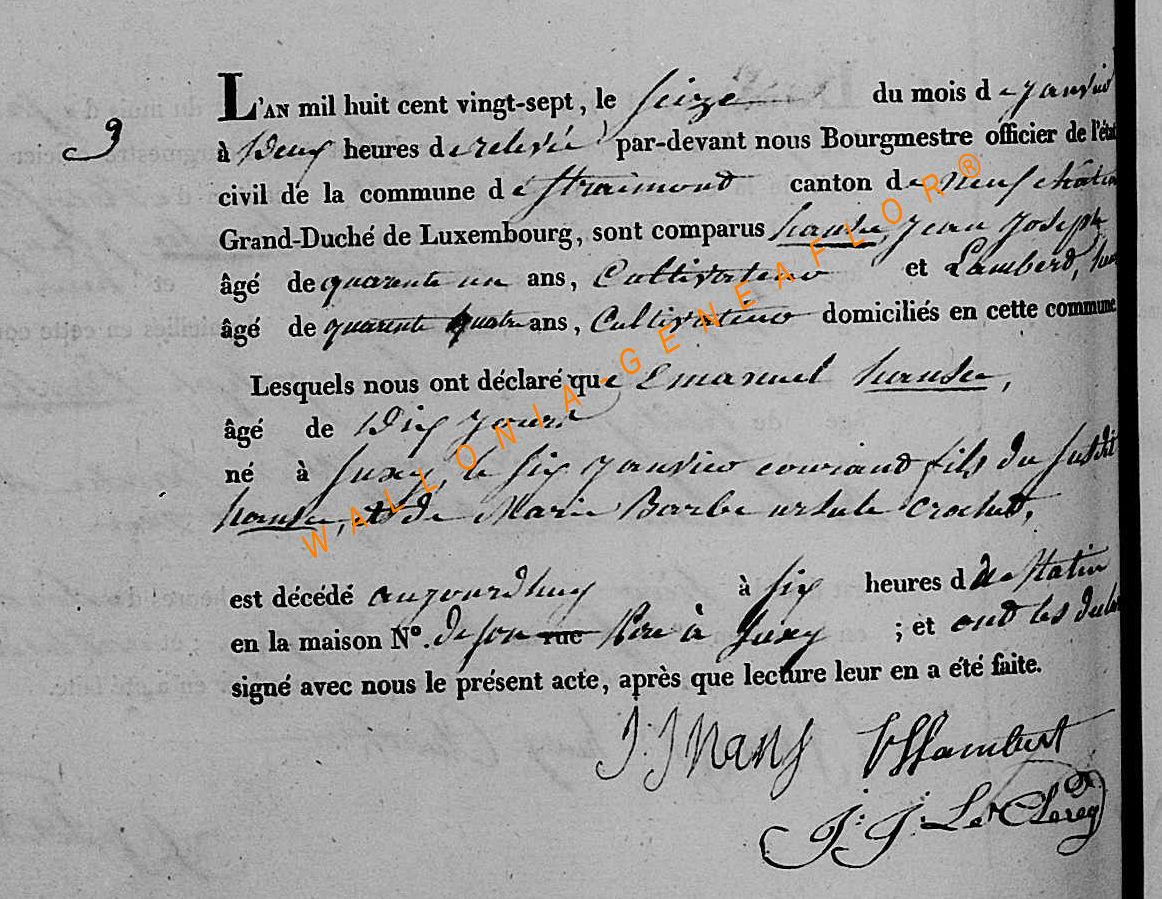 9
L'AN mil huit cent vingt-sept, le Seize du mois de Janvier
à Deux heures de relevée par-devant nous Bourgmestre officier de l'état
civil de la commune de Straimont canton de Neufchâteau
Grand-Duché de Luxembourg, sont comparus Jean Joseph
âgé de quarente un ans, Cultivateur et Lambert,
âgé de quarente quatre ans, Cultivateur domiciliés en cette commune
Lesquels nous ont déclaré que Emanuel
âgé de Dix Jours
né à Suxy, le Six Janvier courand fils du Susdit
et de Marie Barbe ursule
est décédé aujourd'huy à Six heures d de Matin
en la maison N°. de son rue Pere à Suxy ; et ont les
signé avec nous le présent acte, après que lecture leur en a été faite.
J: J
Lambert
J: J: Le Clercq
WALLONIA-GENEAFLOR®